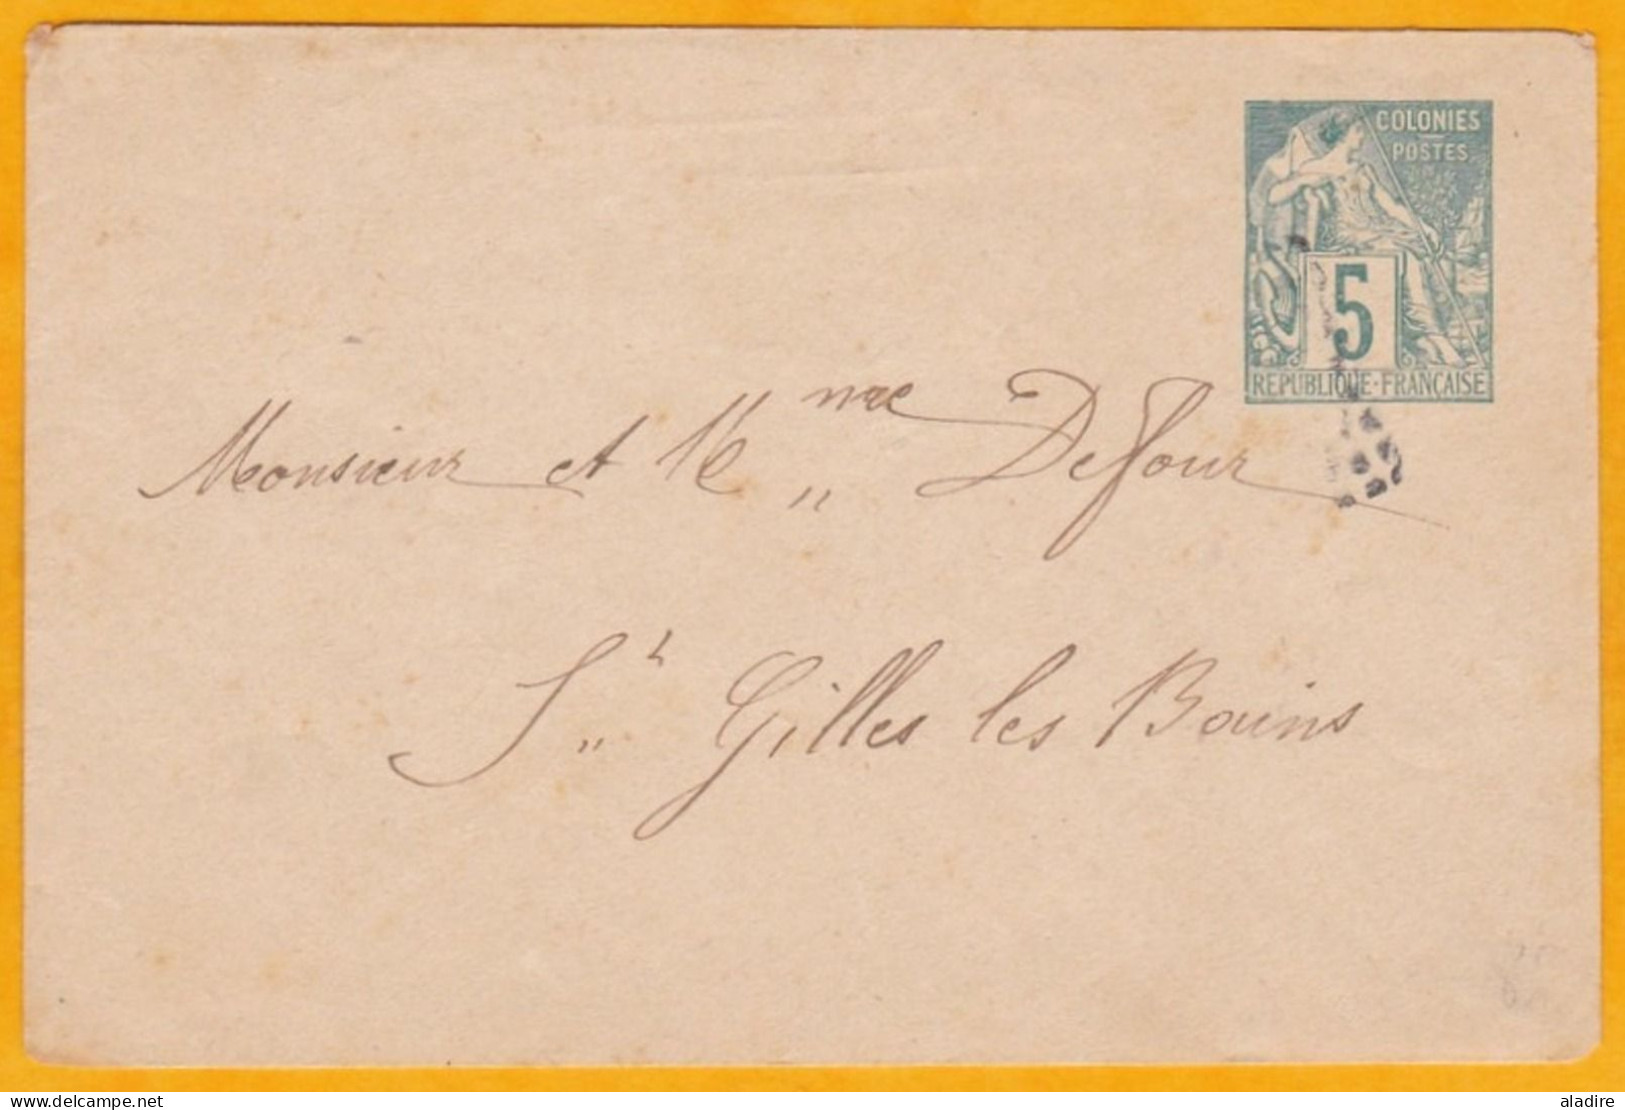 COLONIES
POSTES
5
REPUBLIQUE·FRANÇAISE
Monsieur et Mme Defour
St Gilles les Bains
aladire